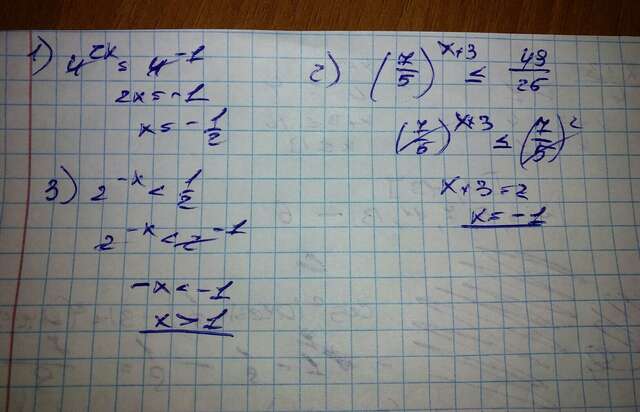 1) 4^2x = 4^-1
2x = -1
x = -1/2
2) (7/5)^x+3 ≤ 49/25
(7/5)^x+3 ≤ (7/5)^2
x+3 = 2
x = -1
3) 2^-x < 1/2
2^-x < 2^-1
-x < -1
x > 1